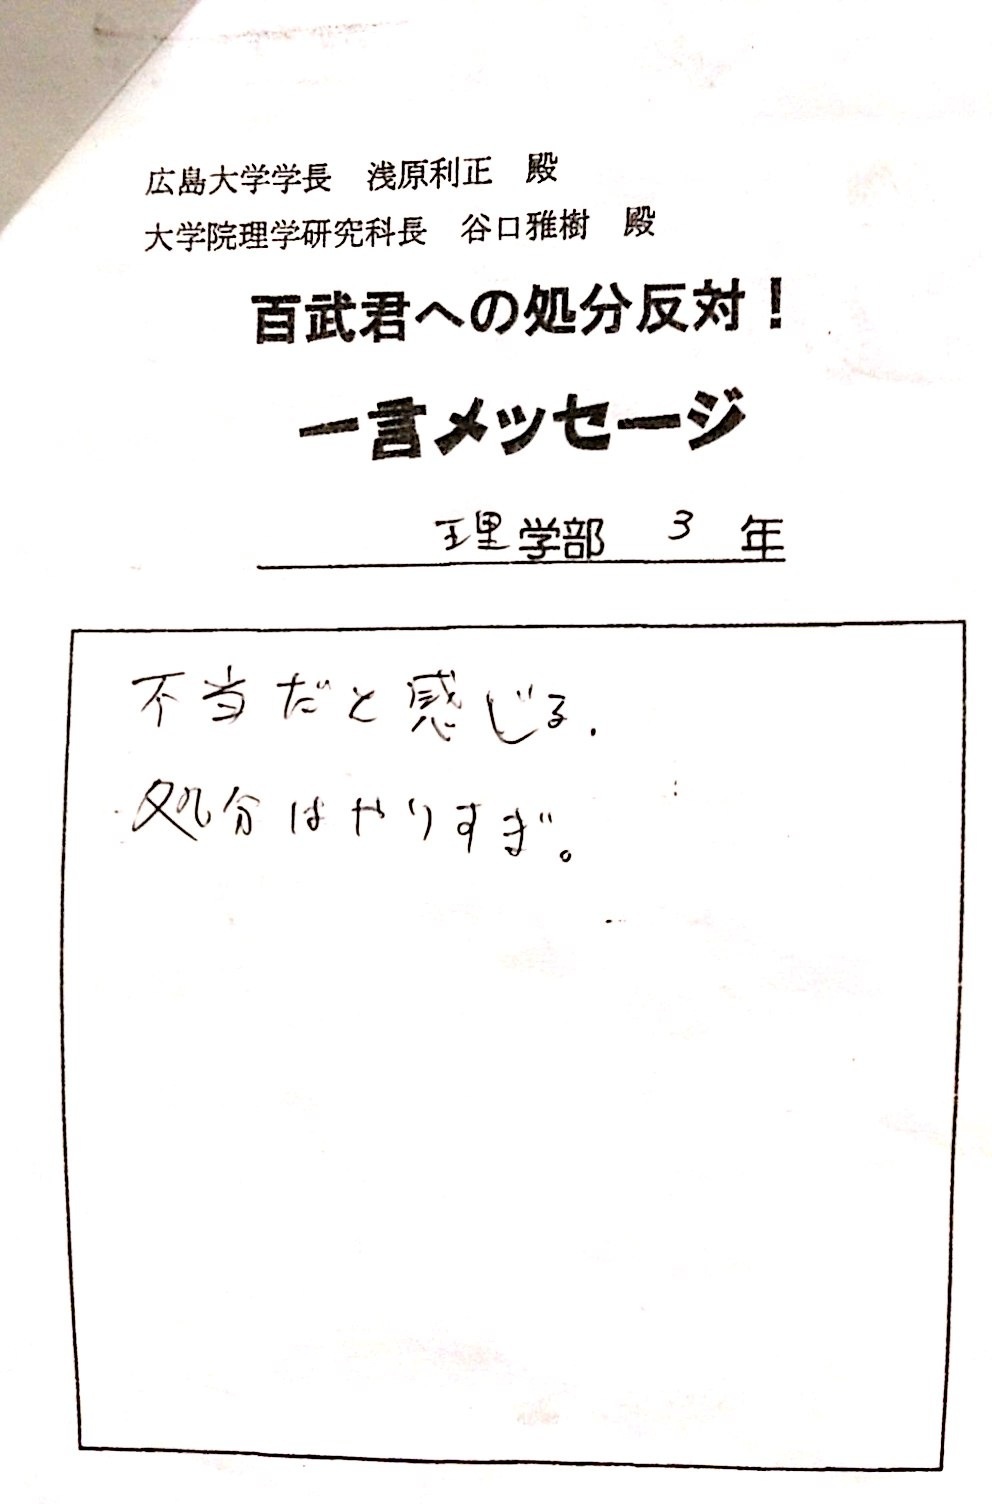 広島大学学長　浅原利正　殿
大学院理学研究科長　谷口雅樹　殿
百武君への処分反対！
一言メッセージ
理学部　3　年
不当だと感じる.
処分はやりすぎ。